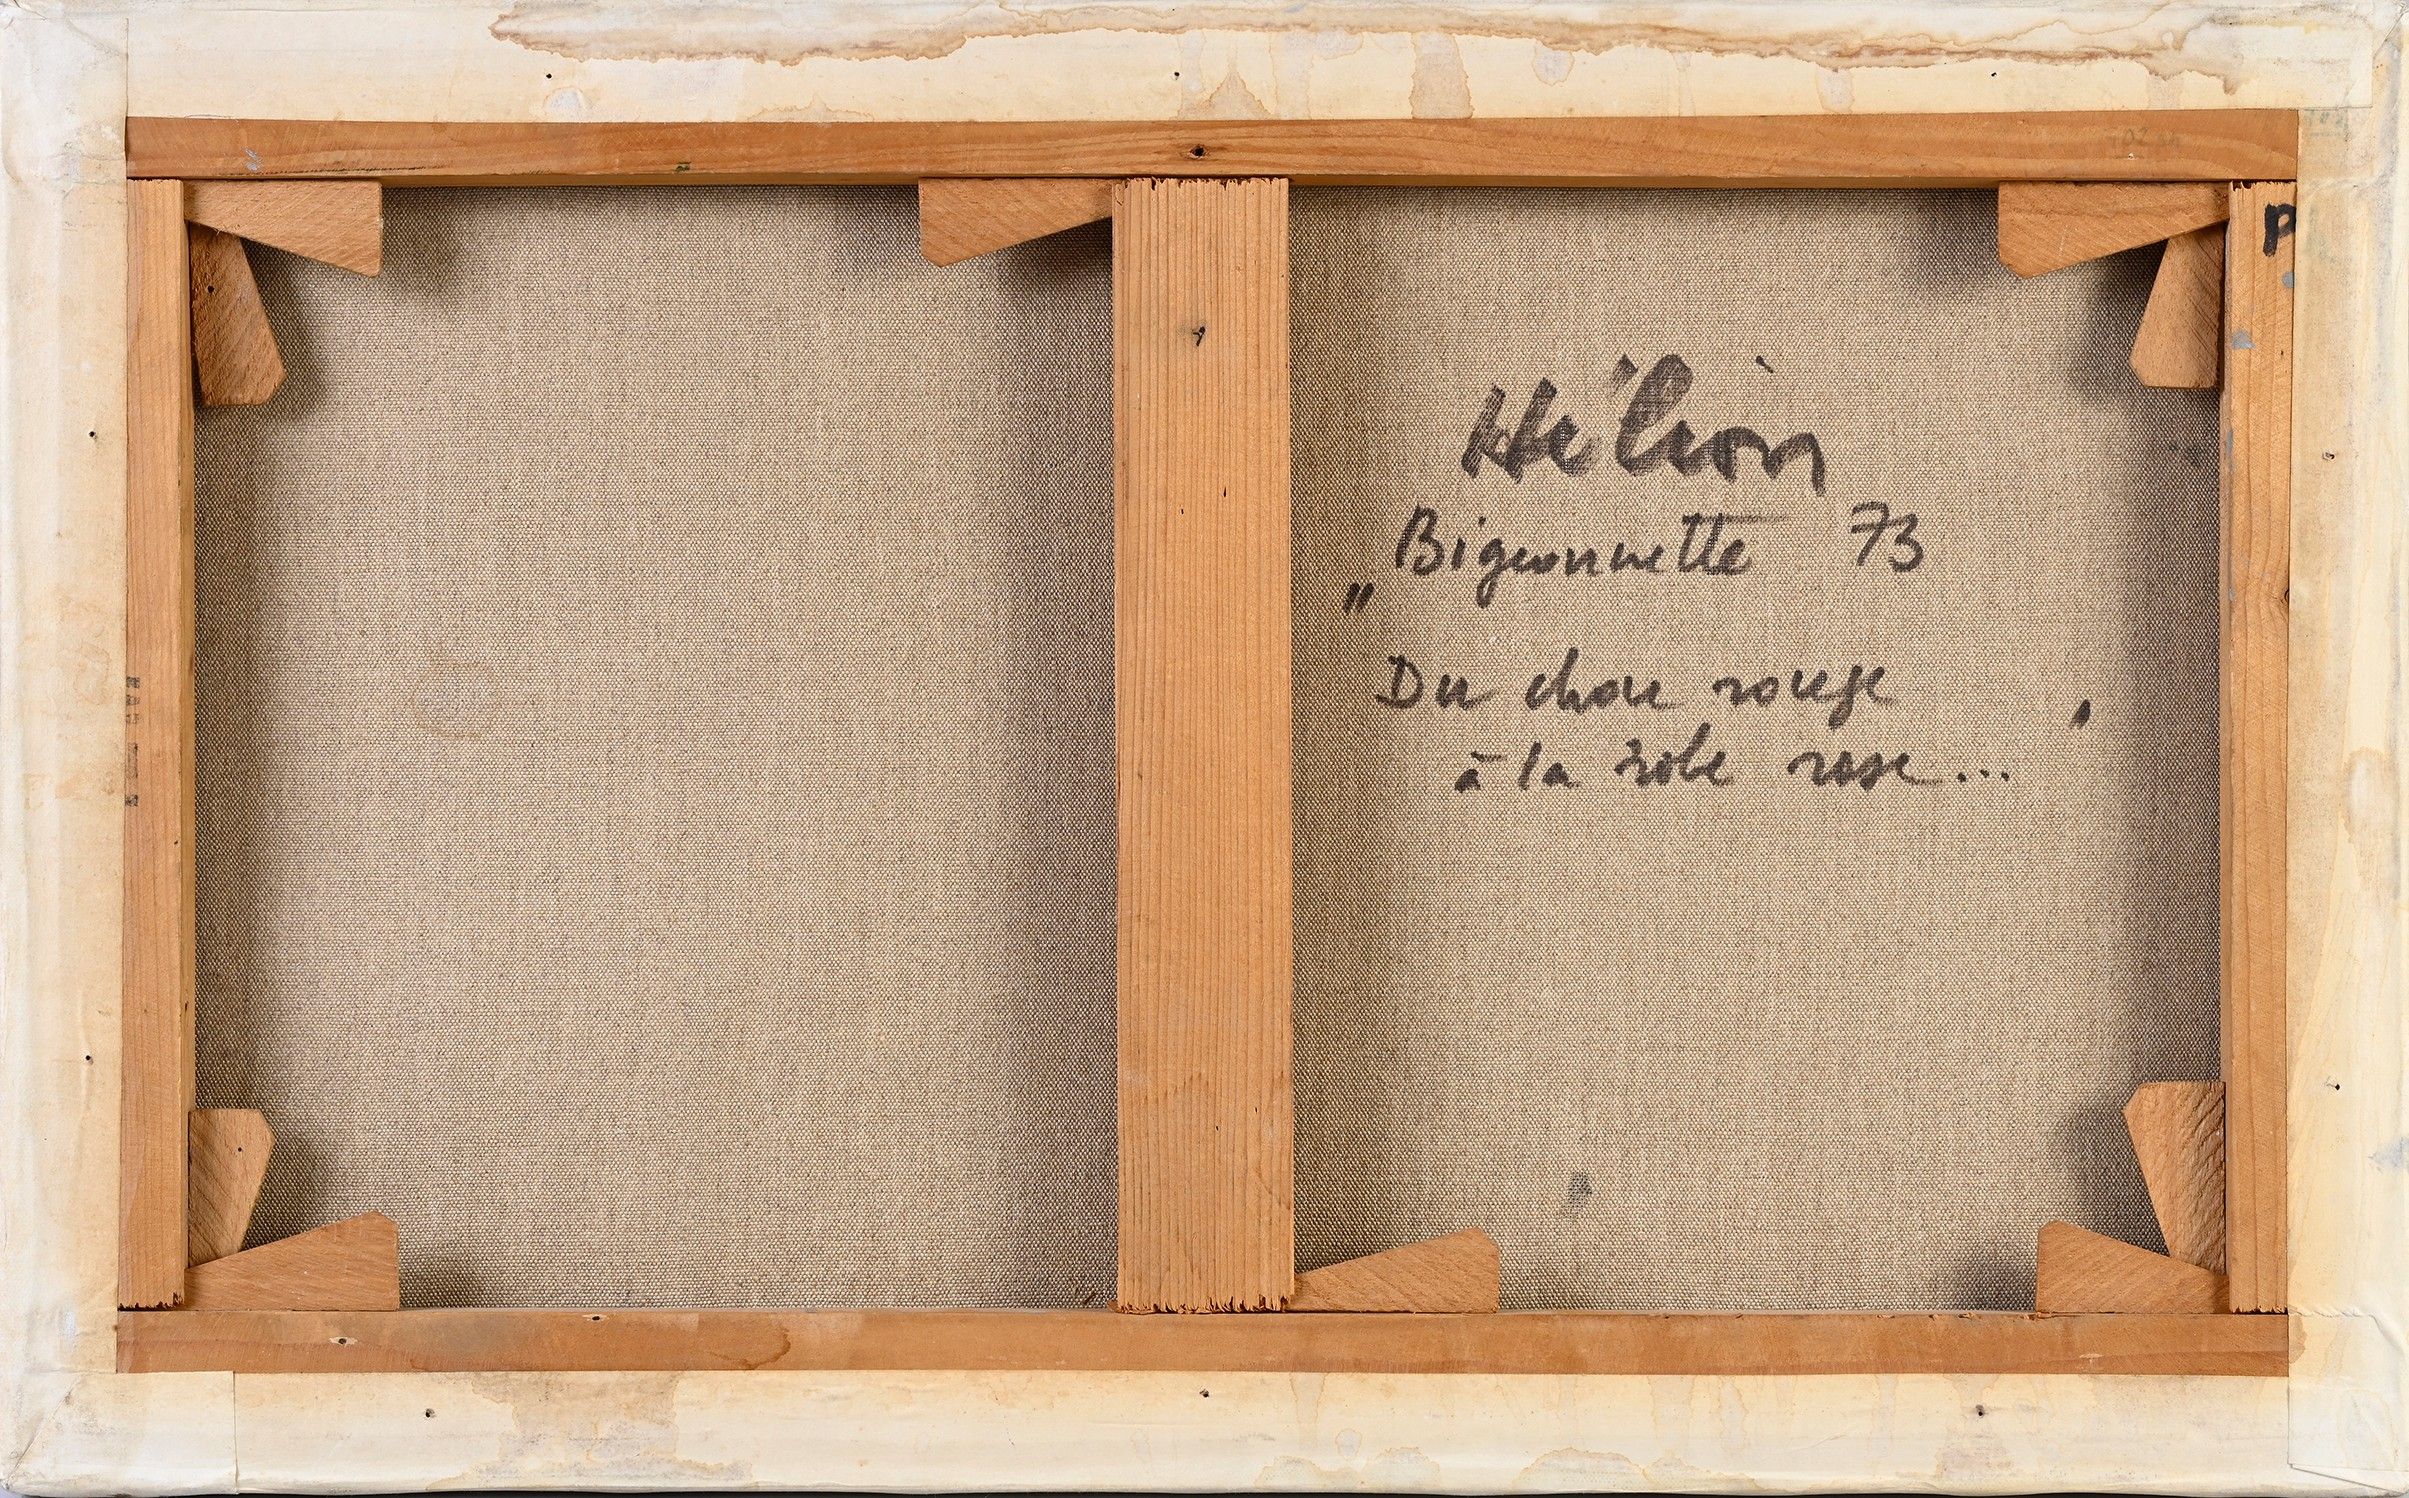 P
Hélion
Bigeonnette 73
"
Du chou rouge
à la robe rose...